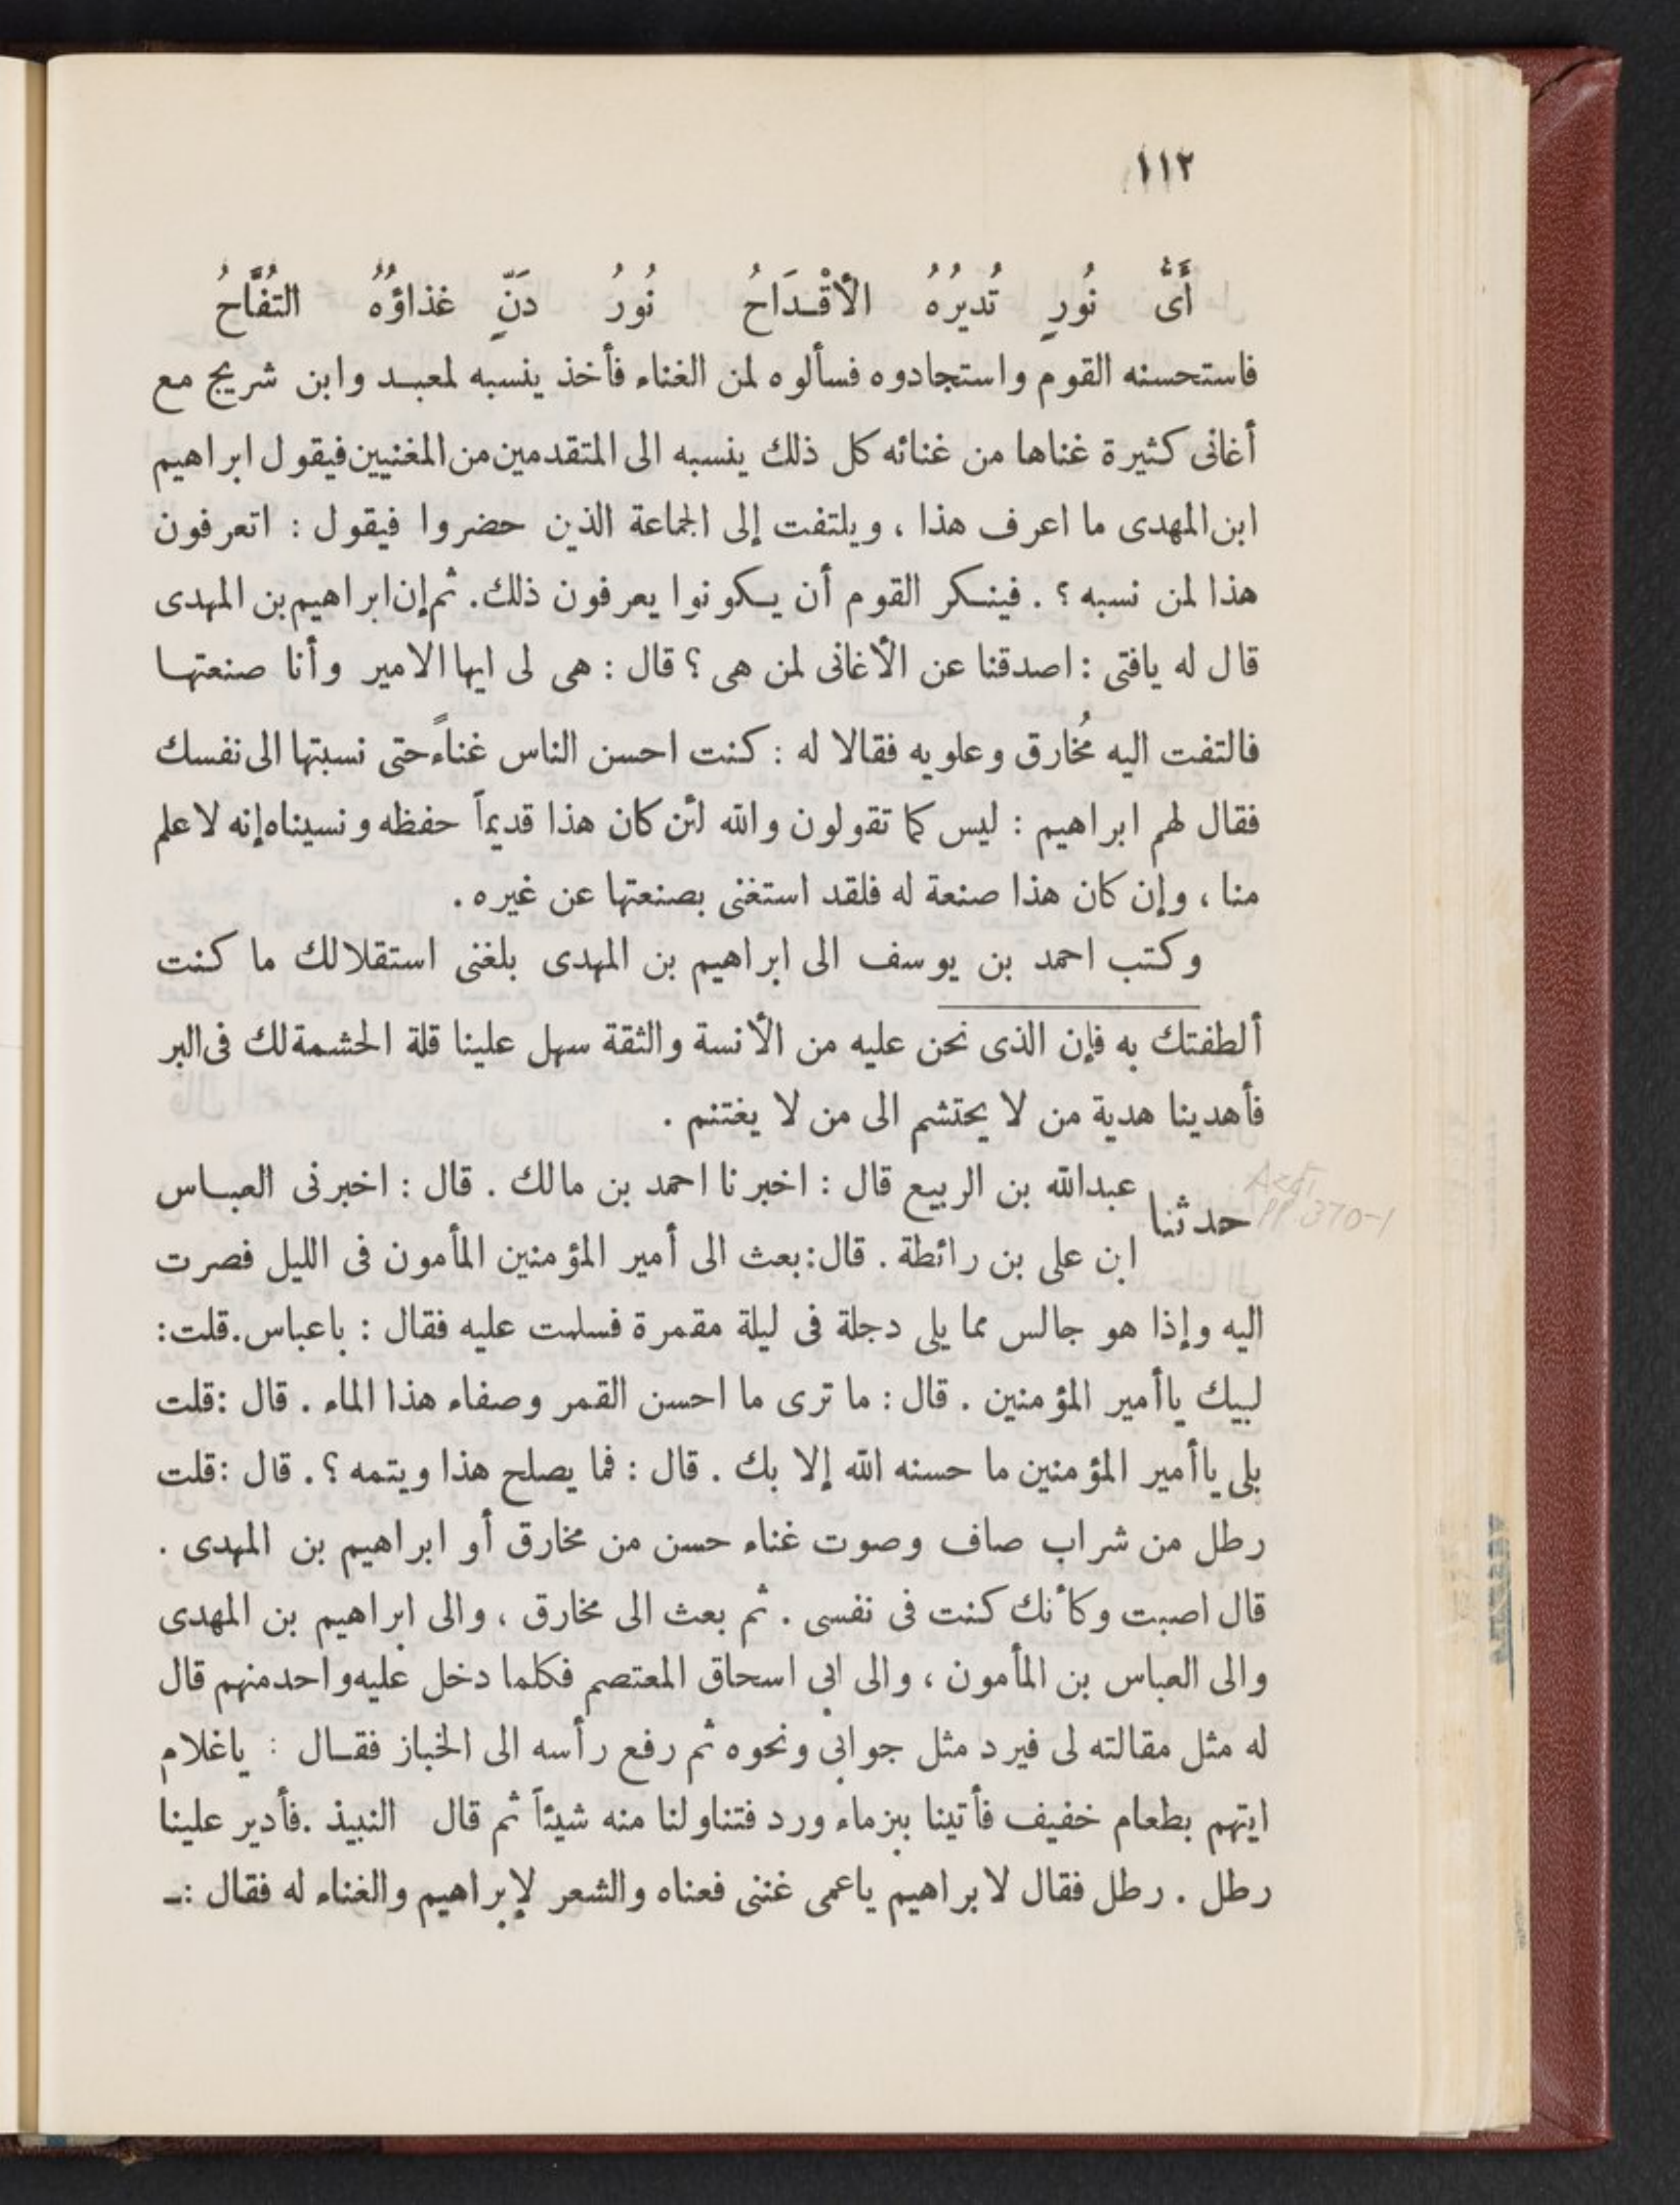 ١١٢
أَىُّ نُورٍ تُديرُهُ الأَقْـدَاحُ نُورُ دَنٍّ غذاؤُهُ التفَّاحُ
فاستحسنه القوم واستجادوه فسألوه لمن الغناء فأخذ ينسبه لمعبـد وابن شريج مع
أغانى كثيرة غناها من غنائه كل ذلك ينسبه الى المتقدمين من المغنيين فيقول ابراهيم
ابن المهدى ما اعرف هذا ، ويلتفت إلى الجماعة الذين حضروا فيقول : اتعرفون
هذا لمن نسبه ؟ . فينـكر القوم أن يـكونوا يعرفون ذلك. ثم إن ابراهيم بن المهدى
قال له يافتى : اصدقنا عن الأغانى لمن هى ؟ قال : هى لى ايها الامير وأنا صنعتهـا
فالتفت اليه مُخارق وعلويه فقالا له : كنت احسن الناس غناءً حتى نسبتها الى نفسك
فقال لهم ابراهيم : ليس كما تقولون والله لئن كان هذا قديماً حفظه ونسيناه إنه لاعلم
منا ، وإن كان هذا صنعة له فلقد استغنى بصنعتها عن غيره .
وكتب احمد بن يوسف الى ابراهيم بن المهدى بلغنى استقلالك ما كنت
ألطفتك به فإن الذى نحن عليه من الأنسة والثقة سهل علينا قلة الحشمة لك فى البر
فأهدينا هدية من لا يحتشم الى من لا يغتنم .
حدثنا عبدالله بن الربيع قال : اخبرنا احمد بن مالك . قال : اخبرنى العبـاس
Azdi
PP 370-1
ابن على بن رائطة . قال: بعث الى أمير المؤمنين المأمون فى الليل فصرت
اليه وإذا هو جالس مما يلى دجلة فى ليلة مقمرة فسلمت عليه فقال : باعباس. قلت:
لبيك ياأمير المؤمنين . قال : ما ترى ما احسن القمر وصفاء هذا الماء . قال :قلت
بلى ياأمير المؤمنين ما حسنه الله إلا بك . قال : فما يصلح هذا ويتمه ؟ . قال :قلت
رطل من شراب صاف وصوت غناء حسن من مخارق أو ابراهيم بن المهدى .
قال اصبت وكأنك كنت فى نفسى . ثم بعث الى مخارق ، والى ابراهيم بن المهدى
والى العباس بن المأمون ، والى ابى اسحاق المعتصم فكلما دخل عليه واحد منهم قال
له مثل مقالته لى فيرد مثل جوابى ونحوه ثم رفع رأسه الى الخباز فقـال : ياغلام
ايتهم بطعام خفيف فأتينا ببزماء ورد فتناولنا منه شيئاً ثم قال النبيذ .فأدير علينا
رطل . رطل فقال لابراهيم ياعمى غننى فعناه والشعر لإبراهيم والغناء له فقال :ـ